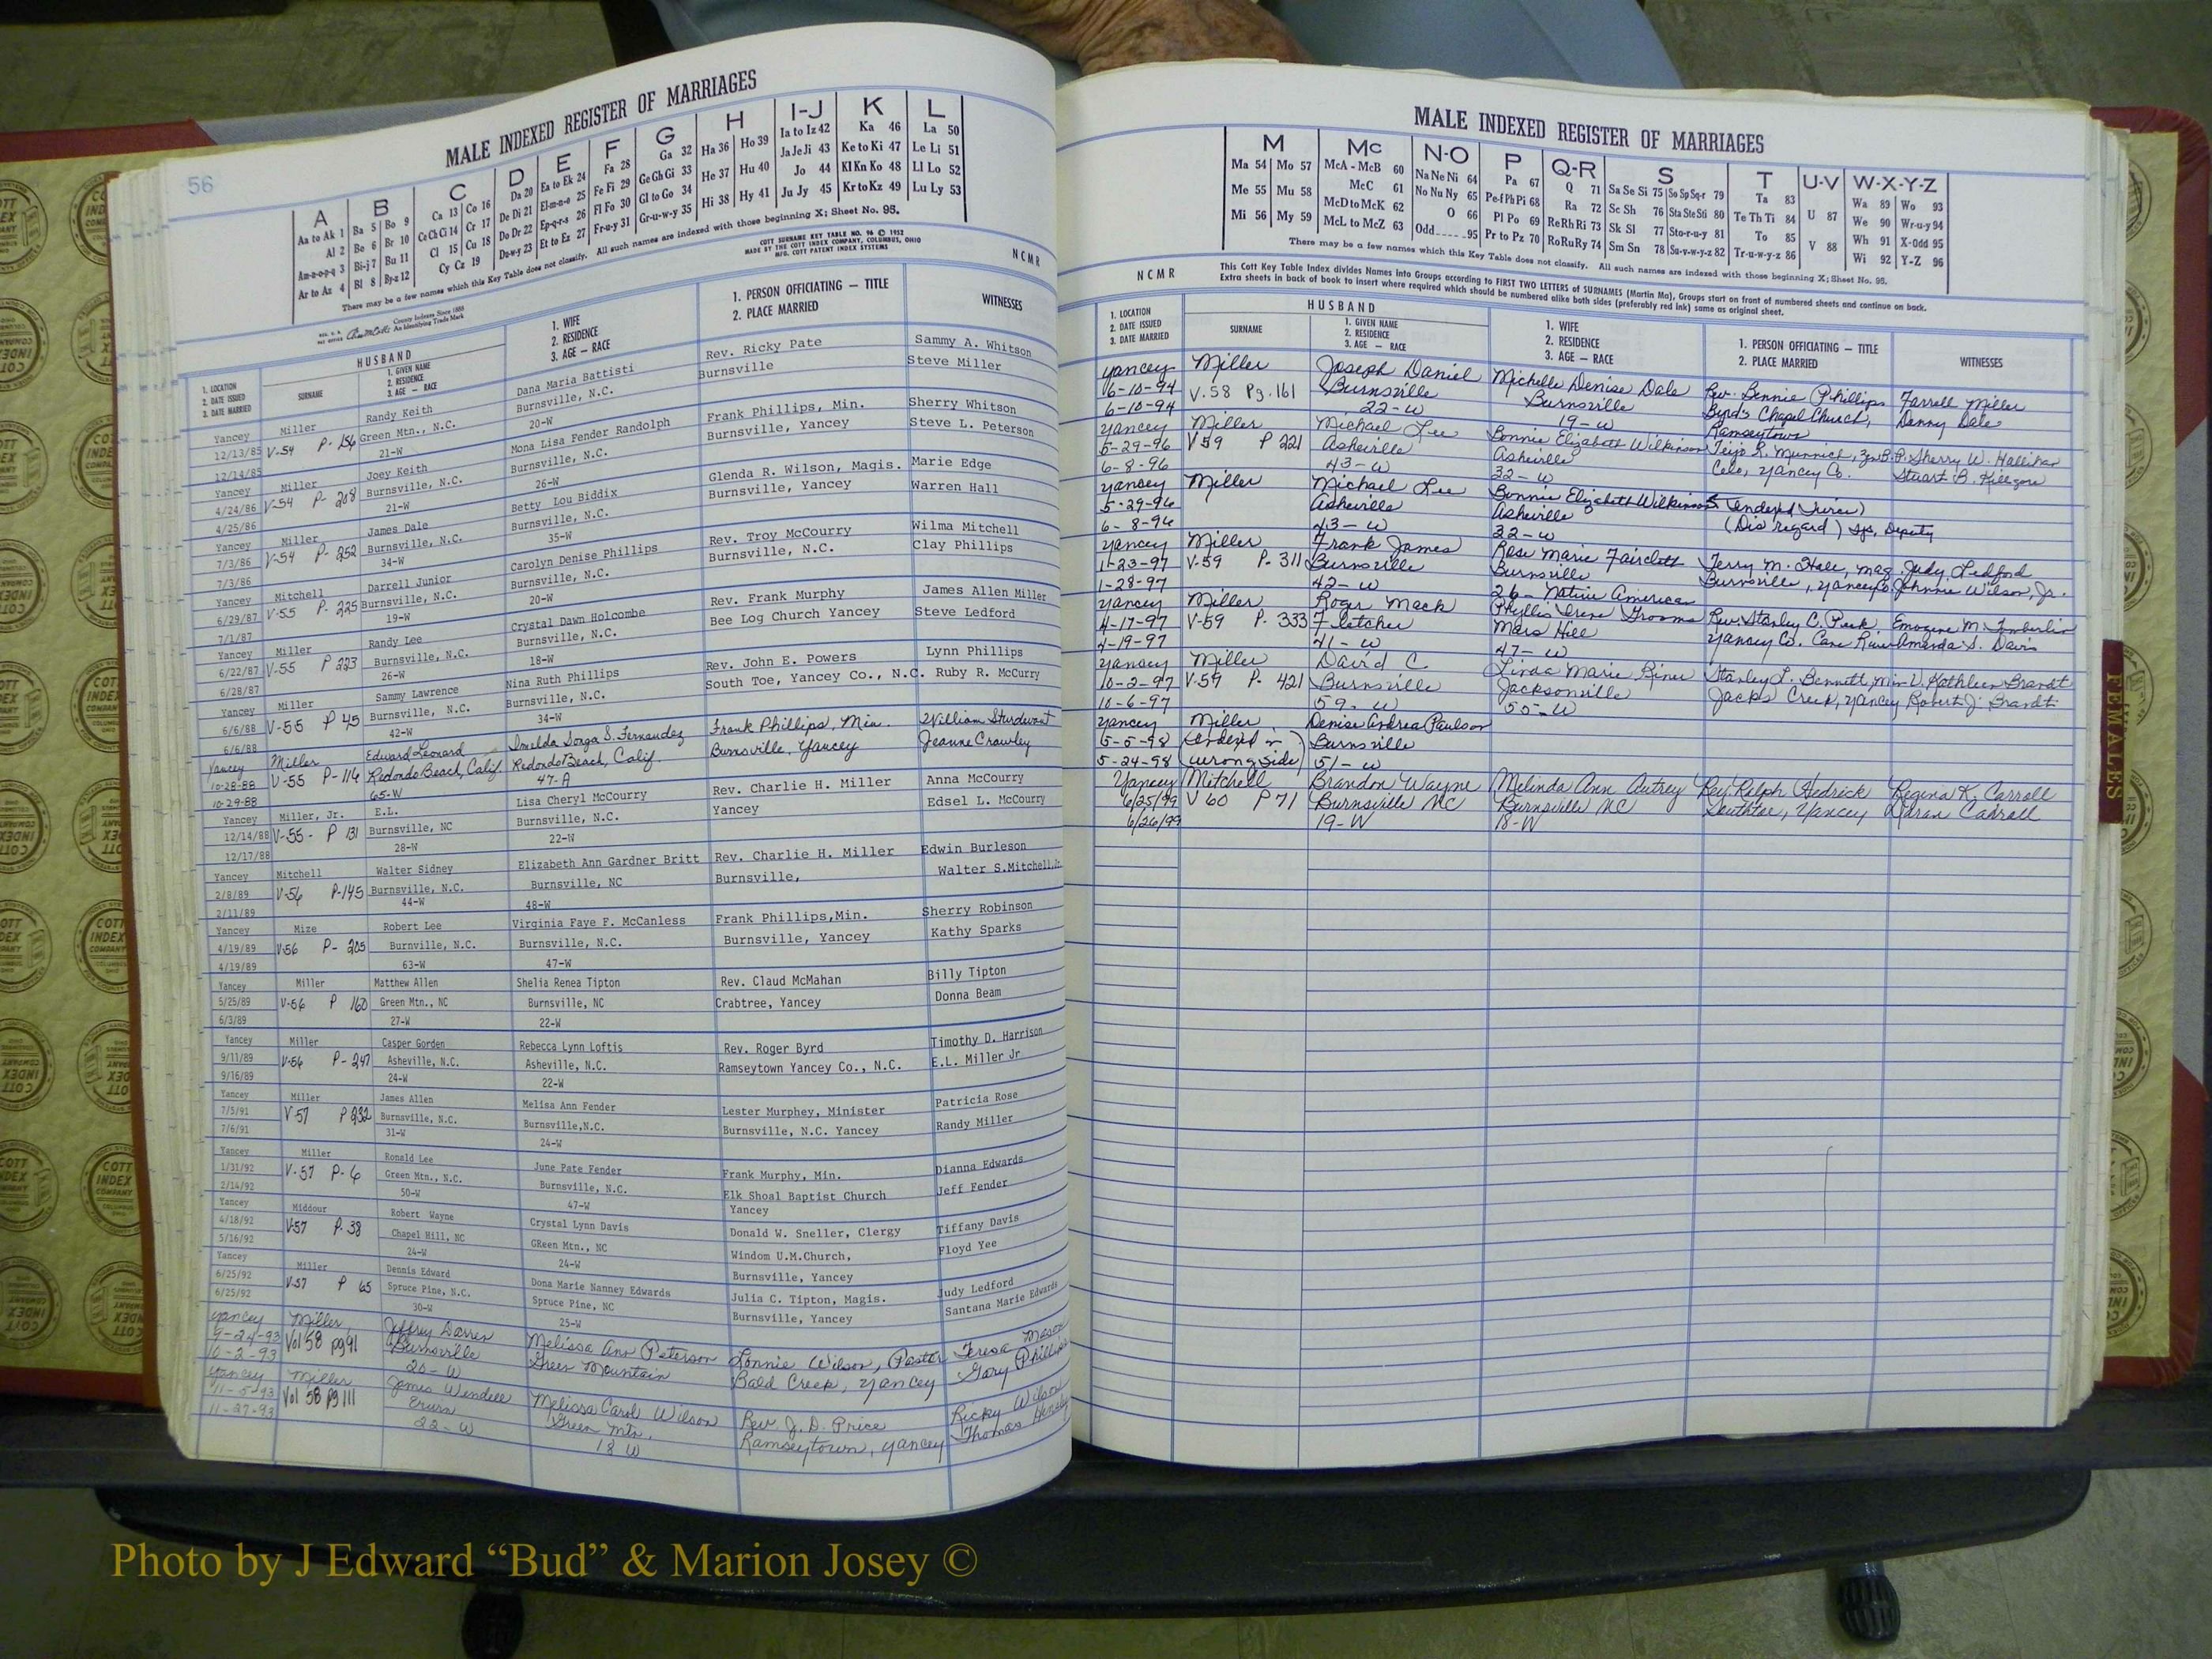 56
MALE INDEXED REGISTER OF MARRIAGES
A B C D E F G H I-J K L
Aa to Ak 1 Ba 5 Bo 9 Ca 13 Co 16 Da 20 Ea to Ek 24 Fa 28 Ga 32 Ha 36 Ho 39 Ia to Iz 42 Ka 46 La 50
Al 2 Be 6 Br 10 Ce Ch Ci 14 Cr 17 De Di 21 El-m-n-o 25 Fe Fi 29 Ge Gh Gi 33 He 37 Hu 40 Ja Je Ji 43 Ke to Ki 47 Le Li 51
Am-n-o-p-q 3 Bi-j 7 Bu 11 Cl 15 Cu 18 Do Dr 22 Ep-q-r-s 26 Fl Fo 30 Gl to Go 34 Hi 38 Hy 41 Jo 44 Kl Kn Ko 48 Ll Lo 52
Ar to Az 4 Bl 8 By-z 12 Cy Cz 19 Du-w-y 23 Et to Ez 27 Fr-u-y 31 Gr-u-w-y 35 Ju Jy 45 Kr to Kz 49 Lu Ly 53
There may be a few names which this Key Table does not classify. All such names are indexed with those beginning X; Sheet No. 95.
COTT SURNAME KEY TABLE NO. 96 © 1952
MADE BY THE COTT INDEX COMPANY, COLUMBUS, OHIO
MFG. COTT PATENT INDEX SYSTEMS
N C M R
County Indexes Since 1888
An Identifying Trade Mark
HUSBAND
1. LOCATION
2. DATE ISSUED
3. DATE MARRIED
SURNAME
1. GIVEN NAME
2. RESIDENCE
3. AGE — RACE
1. WIFE
2. RESIDENCE
3. AGE — RACE
1. PERSON OFFICIATING — TITLE
2. PLACE MARRIED
WITNESSES
Yancey Miller Randy Keith Dana Maria Battisti Rev. Ricky Pate Sammy A. Whitson
12/13/85 V-54 P-156 Green Mtn., N.C. Burnsville, N.C. Burnsville Steve Miller
12/14/85 21-W 20-W
Yancey Miller Joey Keith Mona Lisa Fender Randolph Frank Phillips, Min. Sherry Whitson
4/24/86 V-54 P-208 Burnsville, N.C. Burnsville, N.C. Burnsville, Yancey Steve L. Peterson
4/25/86 21-W 26-W
Yancey Miller James Dale Betty Lou Biddix Glenda R. Wilson, Magis. Marie Edge
7/3/86 V-54 P-252 Burnsville, N.C. Burnsville, N.C. Burnsville, Yancey Warren Hall
7/3/86 34-W 35-W
Yancey Mitchell Darrell Junior Carolyn Denise Phillips Rev. Troy McCourry Wilma Mitchell
6/29/87 V-55 P-225 Burnsville, N.C. Burnsville, N.C. Burnsville, N.C. Clay Phillips
7/1/87 19-W 20-W
Yancey Miller Randy Lee Crystal Dawn Holcombe Rev. Frank Murphy James Allen Miller
6/22/87 V-55 P 223 Burnsville, N.C. Burnsville, N.C. Bee Log Church Yancey Steve Ledford
6/28/87 26-W 18-W
Yancey Miller Sammy Lawrence Nina Ruth Phillips Rev. John E. Powers Lynn Phillips
6/6/88 V-55 P 45 Burnsville, N.C. Burnsville, N.C. South Toe, Yancey Co., N.C. Ruby R. McCurry
6/6/88 42-W 34-W
Yancey Miller Edward Leonard Imelda Sonza S. Fernandez Frank Phillips, Min. William Sturdivant
10-28-88 V-55 P-114 Redondo Beach, Calif. Redondo Beach, Calif. Burnsville, Yancey Jeanne Crawley
10-29-88 65-W 47-A
Yancey Miller, Jr. E.L. Lisa Cheryl McCourry Rev. Charlie H. Miller Anna McCourry
12/14/88 V-55- P 131 Burnsville, NC Burnsville, N.C. Yancey Edsel L. McCourry
12/17/88 28-W 22-W
Yancey Mitchell Walter Sidney Elizabeth Ann Gardner Britt Rev. Charlie H. Miller Edwin Burleson
2/8/89 V-56 P-145 Burnsville, N.C. Burnsville, NC Burnsville, Walter S.Mitchell,Jr.
2/11/89 44-W 48-W
Yancey Mize Robert Lee Virginia Faye F. McCanless Frank Phillips,Min. Sherry Robinson
4/19/89 V-56 P-205 Burnsville, N.C. Burnsville, N.C. Burnsville, Yancey Kathy Sparks
4/19/89 63-W 47-W
Yancey Miller Matthew Allen Shelia Renea Tipton Rev. Claud McMahan Billy Tipton
5/25/89 V-56 P 160 Green Mtn., NC Burnsville, NC Crabtree, Yancey Donna Beam
6/3/89 27-W 22-W
Yancey Miller Casper Gorden Rebecca Lynn Loftis Rev. Roger Byrd Timothy D. Harrison
9/11/89 V-56 P-247 Asheville, N.C. Asheville, N.C. Ramseytown Yancey Co., N.C. E.L. Miller Jr
9/16/89 24-W 22-W
Yancey Miller James Allen Melisa Ann Fender Lester Murphey, Minister Patricia Rose
7/5/91 V57 P 232 Burnsville, N.C. Burnsville,N.C. Burnsville, N.C. Yancey Randy Miller
7/6/91 31-W 24-W
Yancey Miller Ronald Lee June Pate Fender Frank Murphy, Min. Dianna Edwards
1/31/92 V-57 P-6 Green Mtn., N.C. Burnsville, N.C. Elk Shoal Baptist Church Jeff Fender
2/14/92 50-W 47-W Yancey
Yancey Middour Robert Wayne Crystal Lynn Davis Donald W. Sneller, Clergy Tiffany Davis
4/18/92 V-57 P-38 Chapel Hill, NC GReen Mtn., NC Windom U.M.Church, Floyd Yee
5/16/92 24-W 24-W Burnsville, Yancey
Yancey Miller Dennis Edward Dona Marie Nanney Edwards Julia C. Tipton, Magis. Judy Ledford
6/25/92 V-57 P 65 Spruce Pine, N.C. Spruce Pine, NC Burnsville, Yancey Santana Marie Edwards
6/25/92 30-W 25-W
Yancey Miller Jeffrey Darren Melissa Ann Peterson Lonnie Wilson, Pastor Teresa Mason
9-24-93 Vol 58 pg 91 Burnsville Green Mountain Bald Creek, Yancey Gary Phillips
10-2-93 20-W
Yancey Miller James Wendell Melissa Carol Wilson Rev. J. D. Price Ricky Wilson
11-5-93 Vol 58 pg 111 Erwin Green Mtn. Ramseytown, Yancey Thomas Hensley
11-27-93 22-W 18 W
MALE INDEXED REGISTER OF MARRIAGES
M Mc N-O P Q-R S T U-V W-X-Y-Z
Ma 54 Mo 57 McA - McB 60 Na Ne Ni 64 Pa 67 Q 71 Sa Se Si 75 So Sp Sq-r 79 Ta 83 U 87 Wa 89 Wo 93
Me 55 Mu 58 McC 61 No Nu Ny 65 Pe-f Ph Pi 68 Ra 72 Sc Sh 76 Sta Ste Sti 80 Te Th Ti 84 V 88 We 90 Wr-u-y 94
Mi 56 My 59 McD to McK 62 O 66 Pl Po 69 Re Rh Ri 73 Sk Sl 77 Sto-r-u-y 81 To 85 Wh 91 X-Odd 95
McL to McZ 63 Odd 95 Pr to Pz 70 Ro Ru Ry 74 Sm Sn 78 Su-v-w-y-z 82 Tr-u-w-y-z 86 Wi 92 Y-Z 96
There may be a few names which this Key Table does not classify. All such names are indexed with those beginning X; Sheet No. 95.
N C M R
This Cott Key Table Index divides Names into Groups according to FIRST TWO LETTERS of SURNAMES (Martin Ma), Groups start on front of numbered sheets and continue on back.
Extra sheets in back of book to insert where required which should be numbered alike both sides (preferably red ink) same as original sheet.
HUSBAND
1. LOCATION
2. DATE ISSUED
3. DATE MARRIED
SURNAME
1. GIVEN NAME
2. RESIDENCE
3. AGE — RACE
1. WIFE
2. RESIDENCE
3. AGE — RACE
1. PERSON OFFICIATING — TITLE
2. PLACE MARRIED
WITNESSES
Yancey Miller Joseph Daniel Michelle Denise Dale Rev. Bennie Phillips Farrell Miller
6-10-94 V.58 Pg.161 Burnsville Burnsville Byrd's Chapel Church, Danny Dale
6-10-94 22-W 19-W Ramseytown
Yancey Miller Michael Lee Bonnie Elizabeth Wilkinson Teijo R. Munnich, Sherry W. Hallihan
5-29-96 V59 P 221 Asheville Asheville Celo, Yancey Co. Stuart B. Killgore
6-8-96 43-W 32-W
Yancey Miller Michael Lee Bonnie Elizabeth Wilkinson (Indexed Twice)
5-29-96 Asheville Asheville (Dis regard) Deputy
6-8-96 43-W 32-W
Yancey Miller Frank James Rose Marie Faircloth Terry M. Hall, Mag. Judy Ledford
1-23-97 V-59 P-311 Burnsville Burnsville Burnsville, Yancey Co. Johnnie Wilson, Jr.
1-28-97 42-W 26-Native American
Yancey Miller Roger Mack Phyllis Irene Grooms Rev. Stanley C. Peek Emogene M. Tomberlin
4-17-97 V-59 P-333 Fletcher Mars Hill Yancey Co. Cane River Amanda S. Davis
4-19-97 41-W 47-W
Yancey Miller David C. Linda Marie Riner Stanley L. Bennett, Min. V. Kathleen Brandt
10-2-97 V-59 P-421 Burnsville Jacksonville Jacks Creek, Yancey Robert J. Brandt
10-6-97 59-W 55-W
Yancey Miller Denise Andrea Paulson
5-5-98 (Indexed in Burnsville
5-24-98 wrong side) 51-W
Yancey Mitchell Brandon Wayne Melinda Ann Autrey Rev Ralph Hedrick Regina K. Carroll
6/25/99 V 60 P 71 Burnsville NC Burnsville NC Southtoe, Yancey Carroll
6/26/99 19-W 18-W
FEMALES
COTT INDEX COMPANY
Photo by J Edward “Bud” & Marion Josey ©